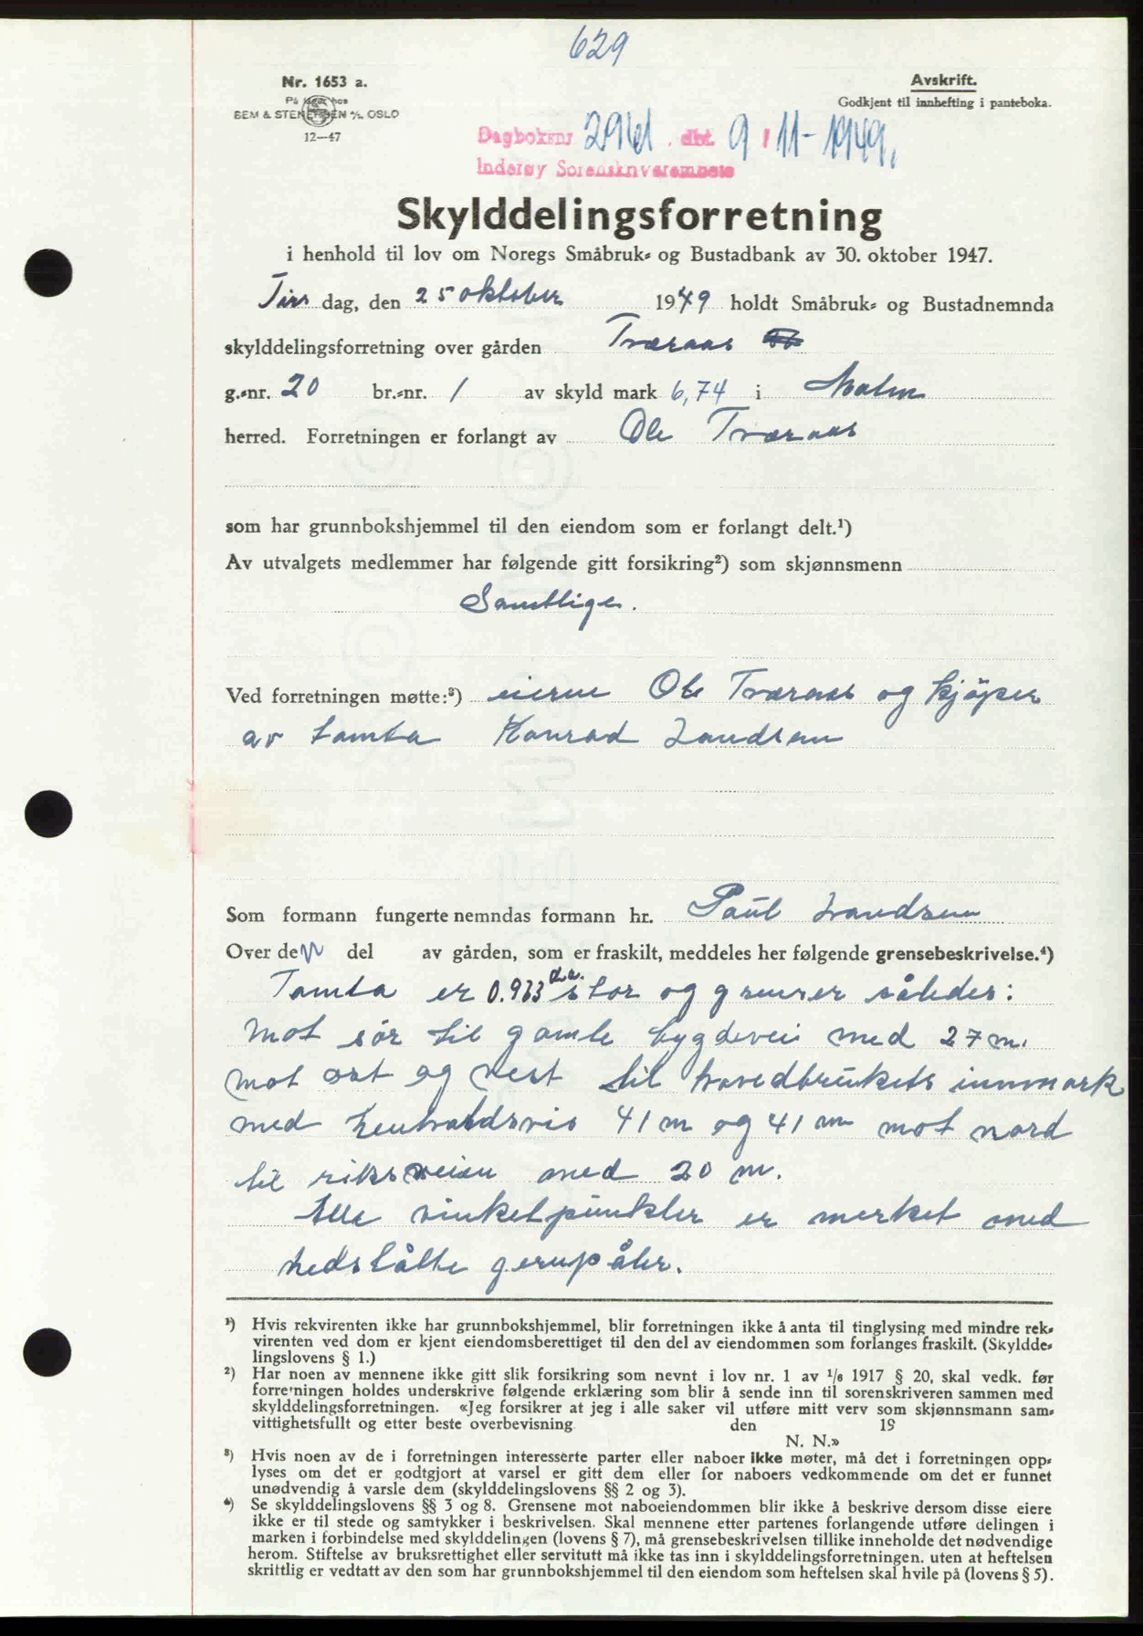 629
Nr. 1653 a.
På lager hos
SEM & STENERSEN A/S, OSLO
12—47
Avskrift.
Godkjent til innhefting i panteboka.
Dagboknr. 2961 . dat. 9 / 11 - 1949.
Inderøy Sorenskriverembete
Skylddelingsforretning
i henhold til lov om Noregs Småbruk- og Bustadbank av 30. oktober 1947.
Tirs dag, den 25 oktober 1949 holdt Småbruk- og Bustadnemnda
skylddelingsforretning over gården Tværaas
g.-nr. 20 br.-nr. 1 av skyld mark 6,74 i Malm
herred. Forretningen er forlangt av Ole Tværaas
som har grunnbokshjemmel til den eiendom som er forlangt delt.¹)
Av utvalgets medlemmer har følgende gitt forsikring²) som skjønnsmenn
Samtlige.
Ved forretningen møtte:³) eieren Ole Tværaas og kjöper
av tomta Konrad Landsem
Som formann fungerte nemndas formann hr. Paul Landsem
Over den del av gården, som er fraskilt, meddeles her følgende grensebeskrivelse.⁴)
Tomta er 0.933 da. stor og grenser således:
Mot sör til gamle bygdevei med 27 m.
mot ost og vest til hovedbrukets innmark
med henholdsvis 41 m og 41 m mot nord
til riksveien med 20 m.
Alle vinkelpunkter er merket med
nedslåtte
¹) Hvis rekvirenten ikke har grunnbokshjemmel, blir forretningen ikke å anta til tinglysing med mindre rek-
virenten ved dom er kjent eiendomsberettiget til den del av eiendommen som forlanges fraskilt. (Skyldde-
lingslovens § 1.)
²) Har noen av mennene ikke gitt slik forsikring som nevnt i lov nr. 1 av 1/6 1917 § 20, skal vedk. før
forretningen holdes underskrive følgende erklæring som blir å sende inn til sorenskriveren sammen med
skylddelingsforretningen. «Jeg forsikrer at jeg i alle saker vil utføre mitt verv som skjønnsmann sam-
vittighetsfullt og etter beste overbevisning den 19
N. N.»
³) Hvis noen av de i forretningen interesserte parter eller naboer ikke møter, må det i forretningen opp-
lyses om det er godtgjort at varsel er gitt dem eller for naboers vedkommende om det er funnet
unødvendig å varsle dem (skylddelingslovens §§ 2 og 3).
⁴) Se skylddelingslovens §§ 3 og 8. Grensene mot naboeiendommen blir ikke å beskrive dersom disse eiere
ikke er til stede og samtykker i beskrivelsen. Skal mennene etter partenes forlangende utføre delingen i
marken i forbindelse med skylddelingen (lovens § 7), må grensebeskrivelsen tillike inneholde det nødvendige
herom. Stiftelse av bruksrettighet eller servitutt må ikke tas inn i skylddelingsforretningen. uten at heftelsen
skriftlig er vedtatt av den som har grunnbokshjemmel til den eiendom som heftelsen skal hvile på (lovens § 5).